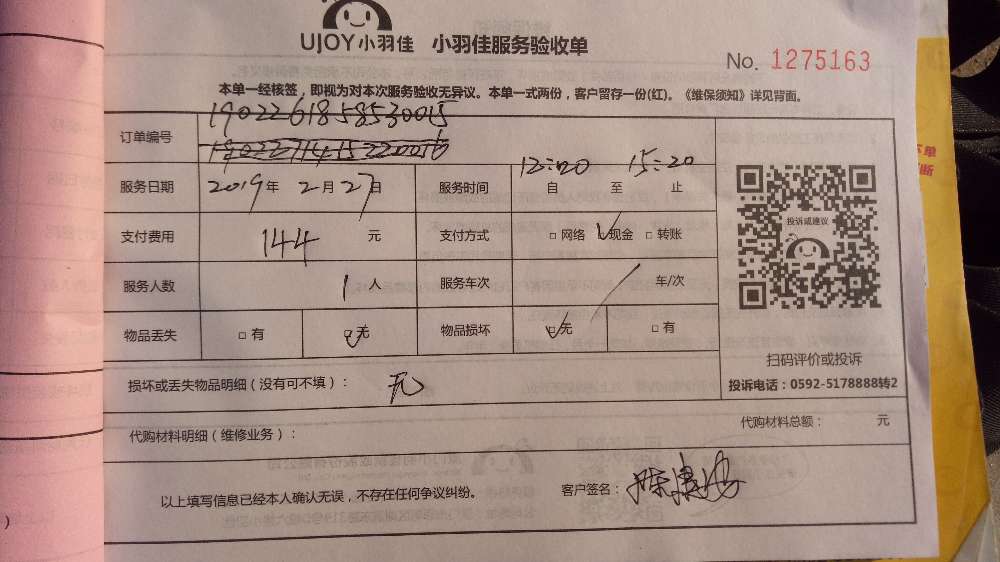 UJOY小羽佳 小羽佳服务验收单
No. 1275163
本单一经核签，即视为对本次服务验收无异议。本单一式两份，客户留存一份(红)。《维保须知》详见背面。
订单编号 1902261858530015
服务日期 2019年 2月 27日 服务时间 12:20 自 至 15:20 止
支付费用 144 元 支付方式 □ 网络 ✓现金 □ 转账
服务人数 1 人 服务车次 / 车/次
物品丢失 □ 有 ☑无 物品损坏 ☑无 □ 有
投诉或建议
扫码评价或投诉
投诉电话：0592-5178888转2
损坏或丢失物品明细（没有可不填）： 无
代购材料明细（维修业务）： 代购材料总额： 元
以上填写信息已经本人确认无误，不存在任何争议纠纷。 客户签名：